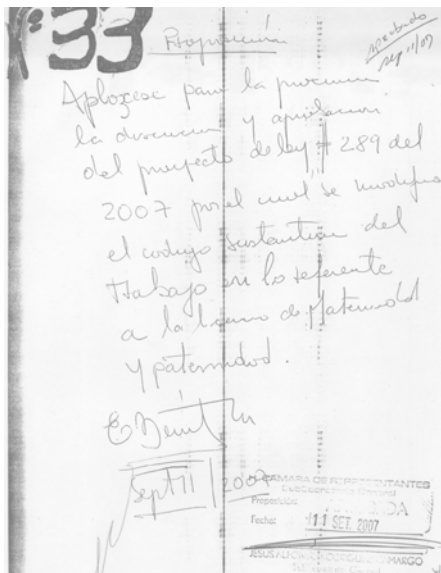 Nº 33
Proposición
aprobado
sep 11/07
Aplázese para la proxima
la discusion y aprobacion
del proyecto de ley # 289 del
2007 por el cual se modifica
el codigo sustantivo del
trabajo en lo referente
a la licencia de Maternidad
y paternidad.
Sept 11 / 2007
CAMARA DE REPRESENTANTES
Secretaria General
Proposición
Fecha: 11 SET. 2007
JESUS ALFONSO RODRIGUEZ CAMARGO
Secretario General